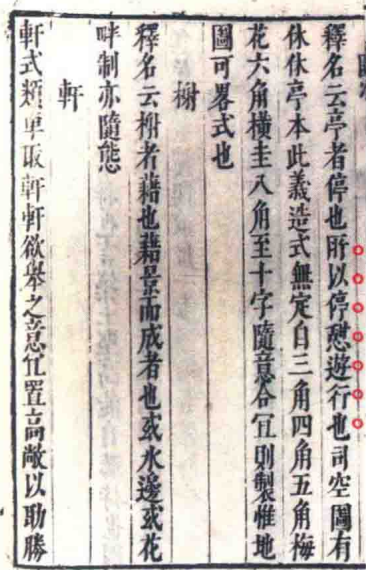 釋名云亭者停也所以停憇遊行也司空圖有
休休亭本此義造式無定自三角四角五角梅
花六角橫圭八角至十字隨意合宜則製惟地
圖可畧式也
榭
釋名云榭者藉也藉景而成者也或水邊或花
畔制亦隨態
軒
軒式類車取軒軒欲舉之意宜置高敞以助勝